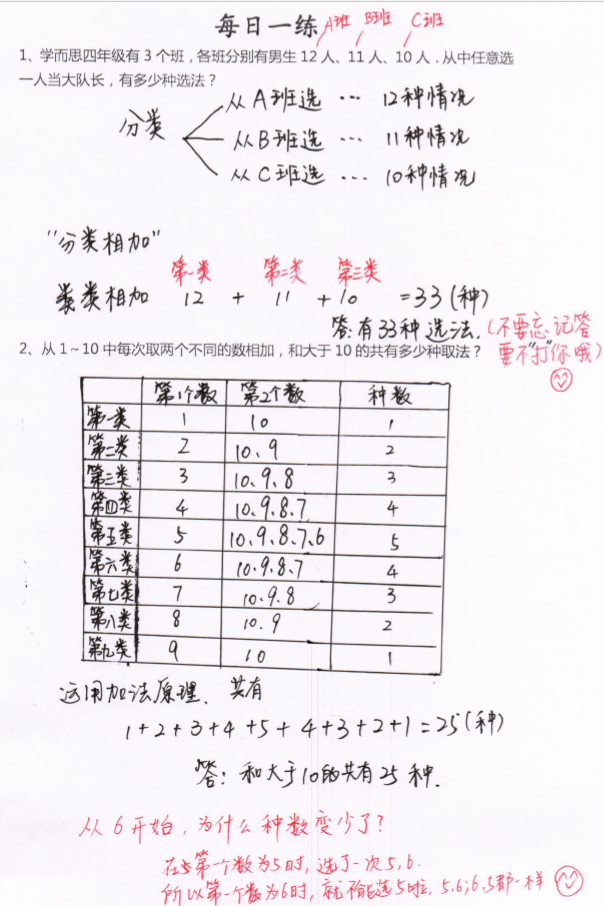 每日一练
A班 B班 C班
1、学而思四年级有 3 个班，各班分别有男生 12 人、11 人、10 人．从中任意选
一人当大队长，有多少种选法？
分类
从A班选 … 12种情况
从B班选 … 11种情况
从C班选 … 10种情况
"分类相加"
第一类 第二类 第三类
类类相加 12 + 11 + 10 = 33（种）
答：有33种选法.
（不要忘记答
要不"打"你哦）
2、从 1～10 中每次取两个不同的数相加，和大于 10 的共有多少种取法？
第1个数 第2个数 种数
第一类 1 10 1
第二类 2 10、9 2
第三类 3 10、9、8 3
第四类 4 10、9、8、7 4
第五类 5 10、9、8、7、6 5
第六类 6 10、9、8、7 4
第七类 7 10、9、8 3
第八类 8 10、9 2
第九类 9 10 1
运用加法原理．共有
1+2+3+4+5+4+3+2+1=25（种）
答：和大于10的共有25种．
从6开始，为什么种数变少了？
在第一个数为5时，选了一次5,6.
所以第一个数为6时，就不能选5啦，5,6;6,5都一样